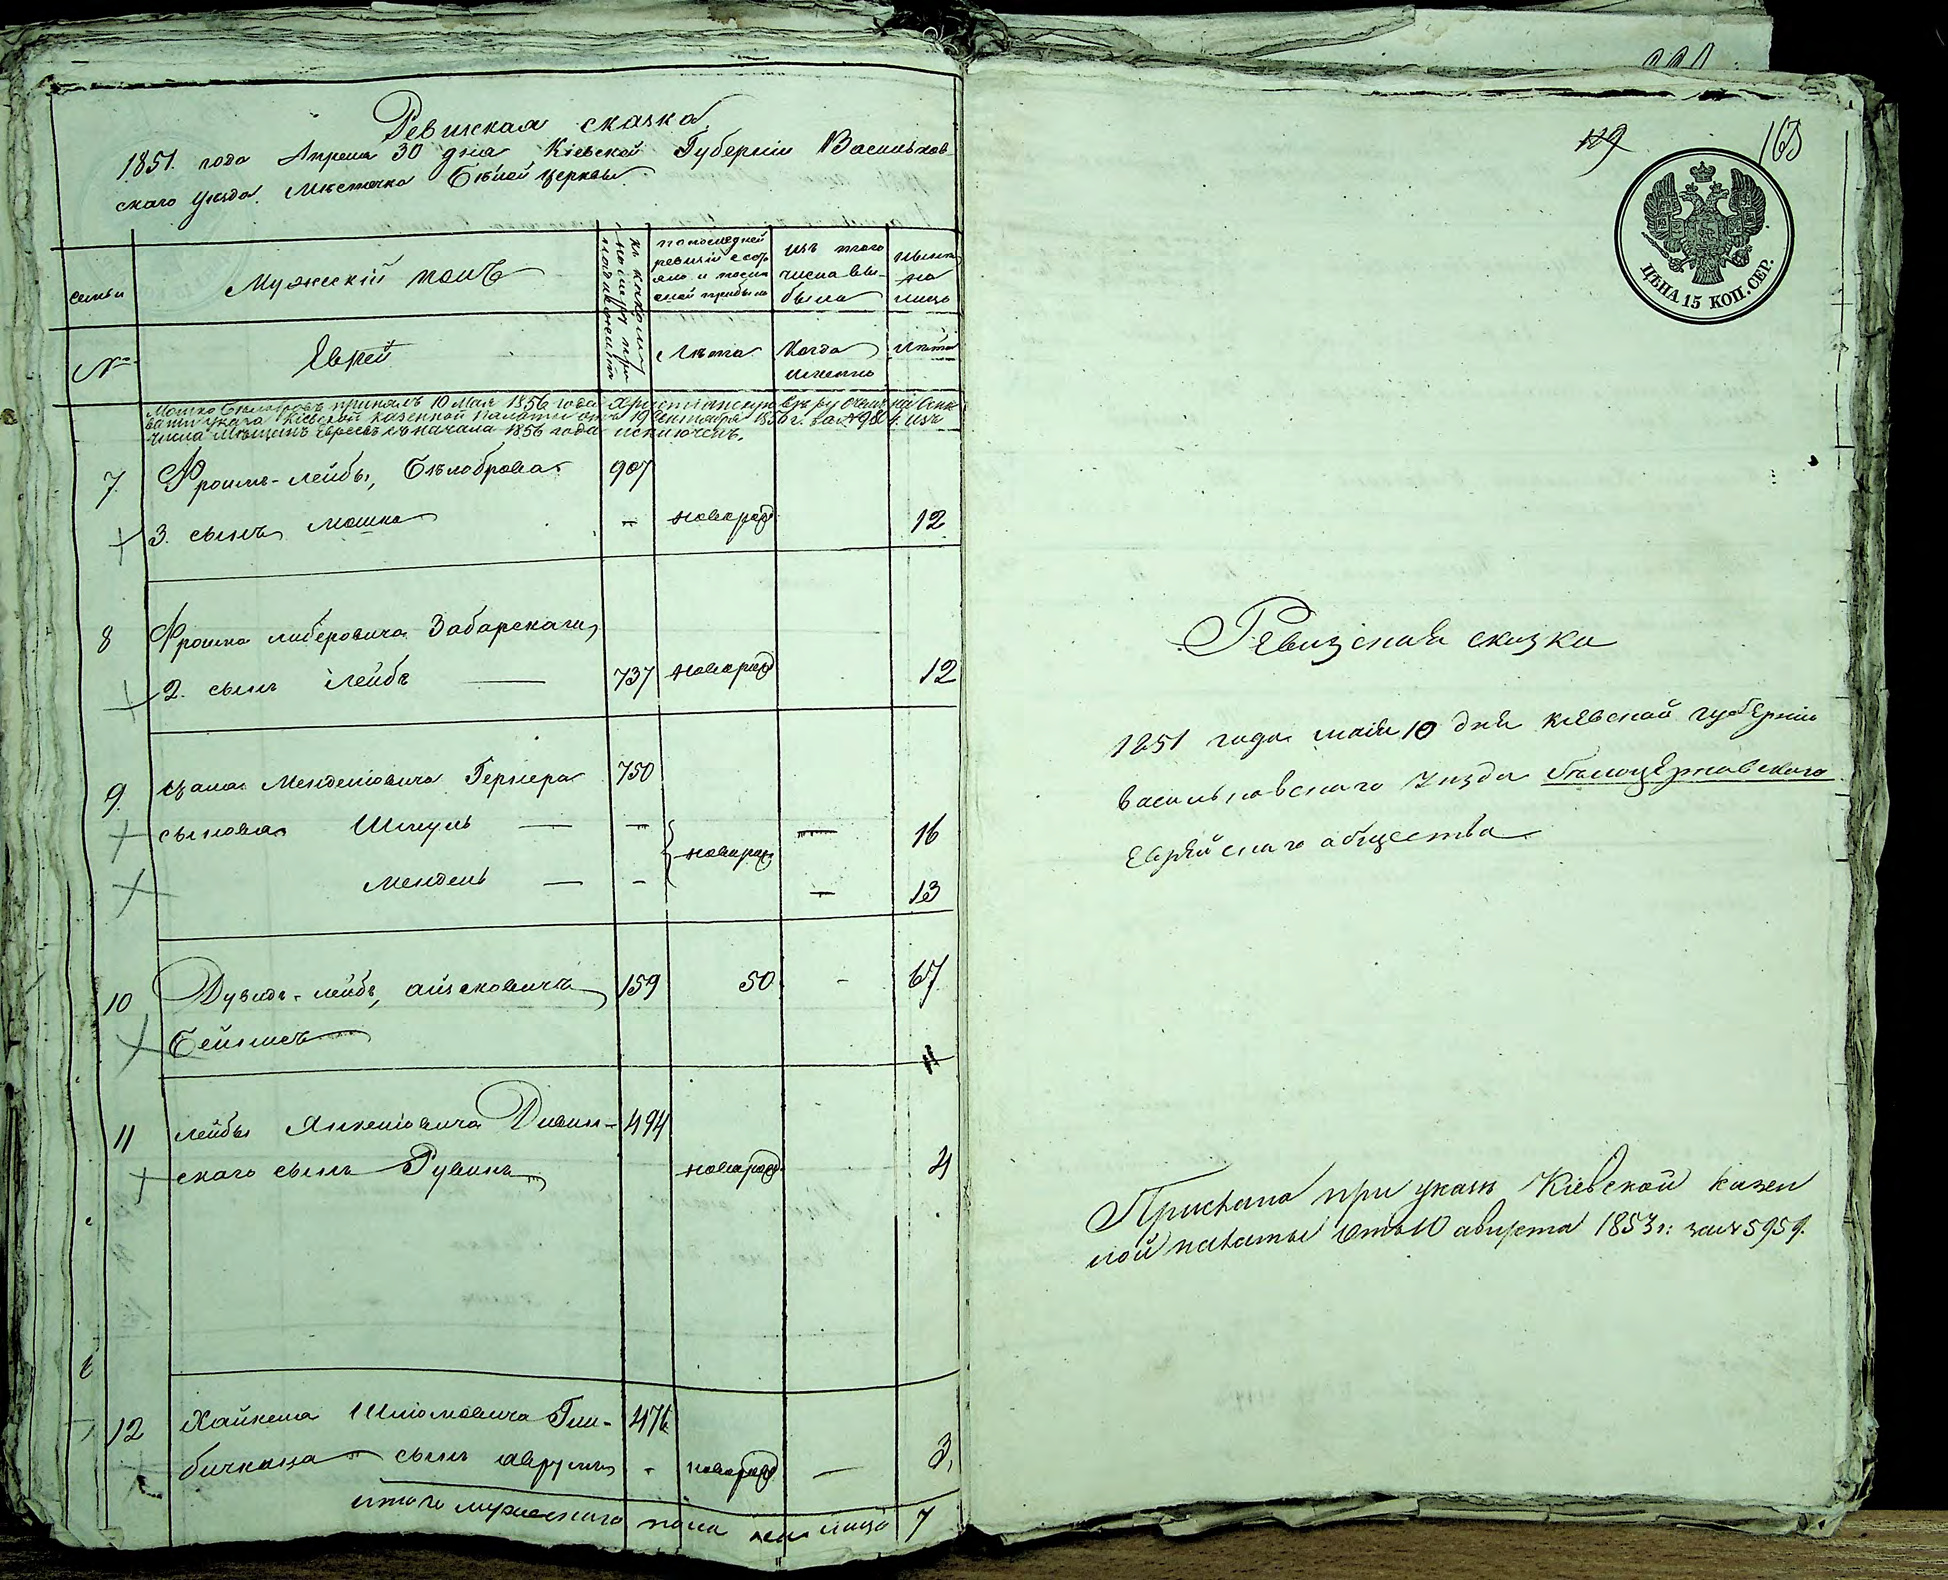 Ревижская сказка
1851 года Апреля 30 дня Кіевской Губерніи Васильков
скаго уезда. Мѣстечка Бѣлой церкви
семьи
Мужескій полъ
къ какому номеру принадлежитъ
по последней
ревизіи состо
яло и после
оной прибыло
изъ того
числа вы-
было
нынѣ
на
лицо
№
Еврей
Лѣта
Когда
именно
Лѣта
Мошко Бѣлобровъ принялъ 10 Мая 1856 года Христіанскую вѣру о чемъ на Осно
ваніи указа Кіевской Казенной Палаты отъ 19 Сентября 1856 г. за № изъ
числа мѣщанъ Евреевъ съ начала 1856 года исключенъ.
7 Фроимъ-лейбы, Бѣлоброва 907
3. сынъ мошко - новорож 12
8 Фроима либеровича Забарскаго,
2. сынъ Лейбъ — 737 новорож 12
9. Менделіовича Гернера 750
сыновья Шмуль — — новорож — 16
Мендель — - — 13
10 Дувидъ-лейбъ, айзиковичъ 159 50 - 67
Бейлисъ
11 лейбы Янкеліовича Дивин- 494
скаго сынъ Рувинъ новорож 4
12 Хайкеля Шліомовича Гли- 476
сынъ аврумъ - новорож — 3,
итого мужескаго пола на лицо 7
119 163
ЦѢНА 15 КОП. СЕР.
Ревизская сказка
1851 года маія 10 дня кіевской губерніи
васильковскаго уѣзда бѣлоцерковскаго
еврейскаго общества
Прислана при указѣ Кіевской казен
ной палаты отъ 10 августа 1853 г: за № 5959.